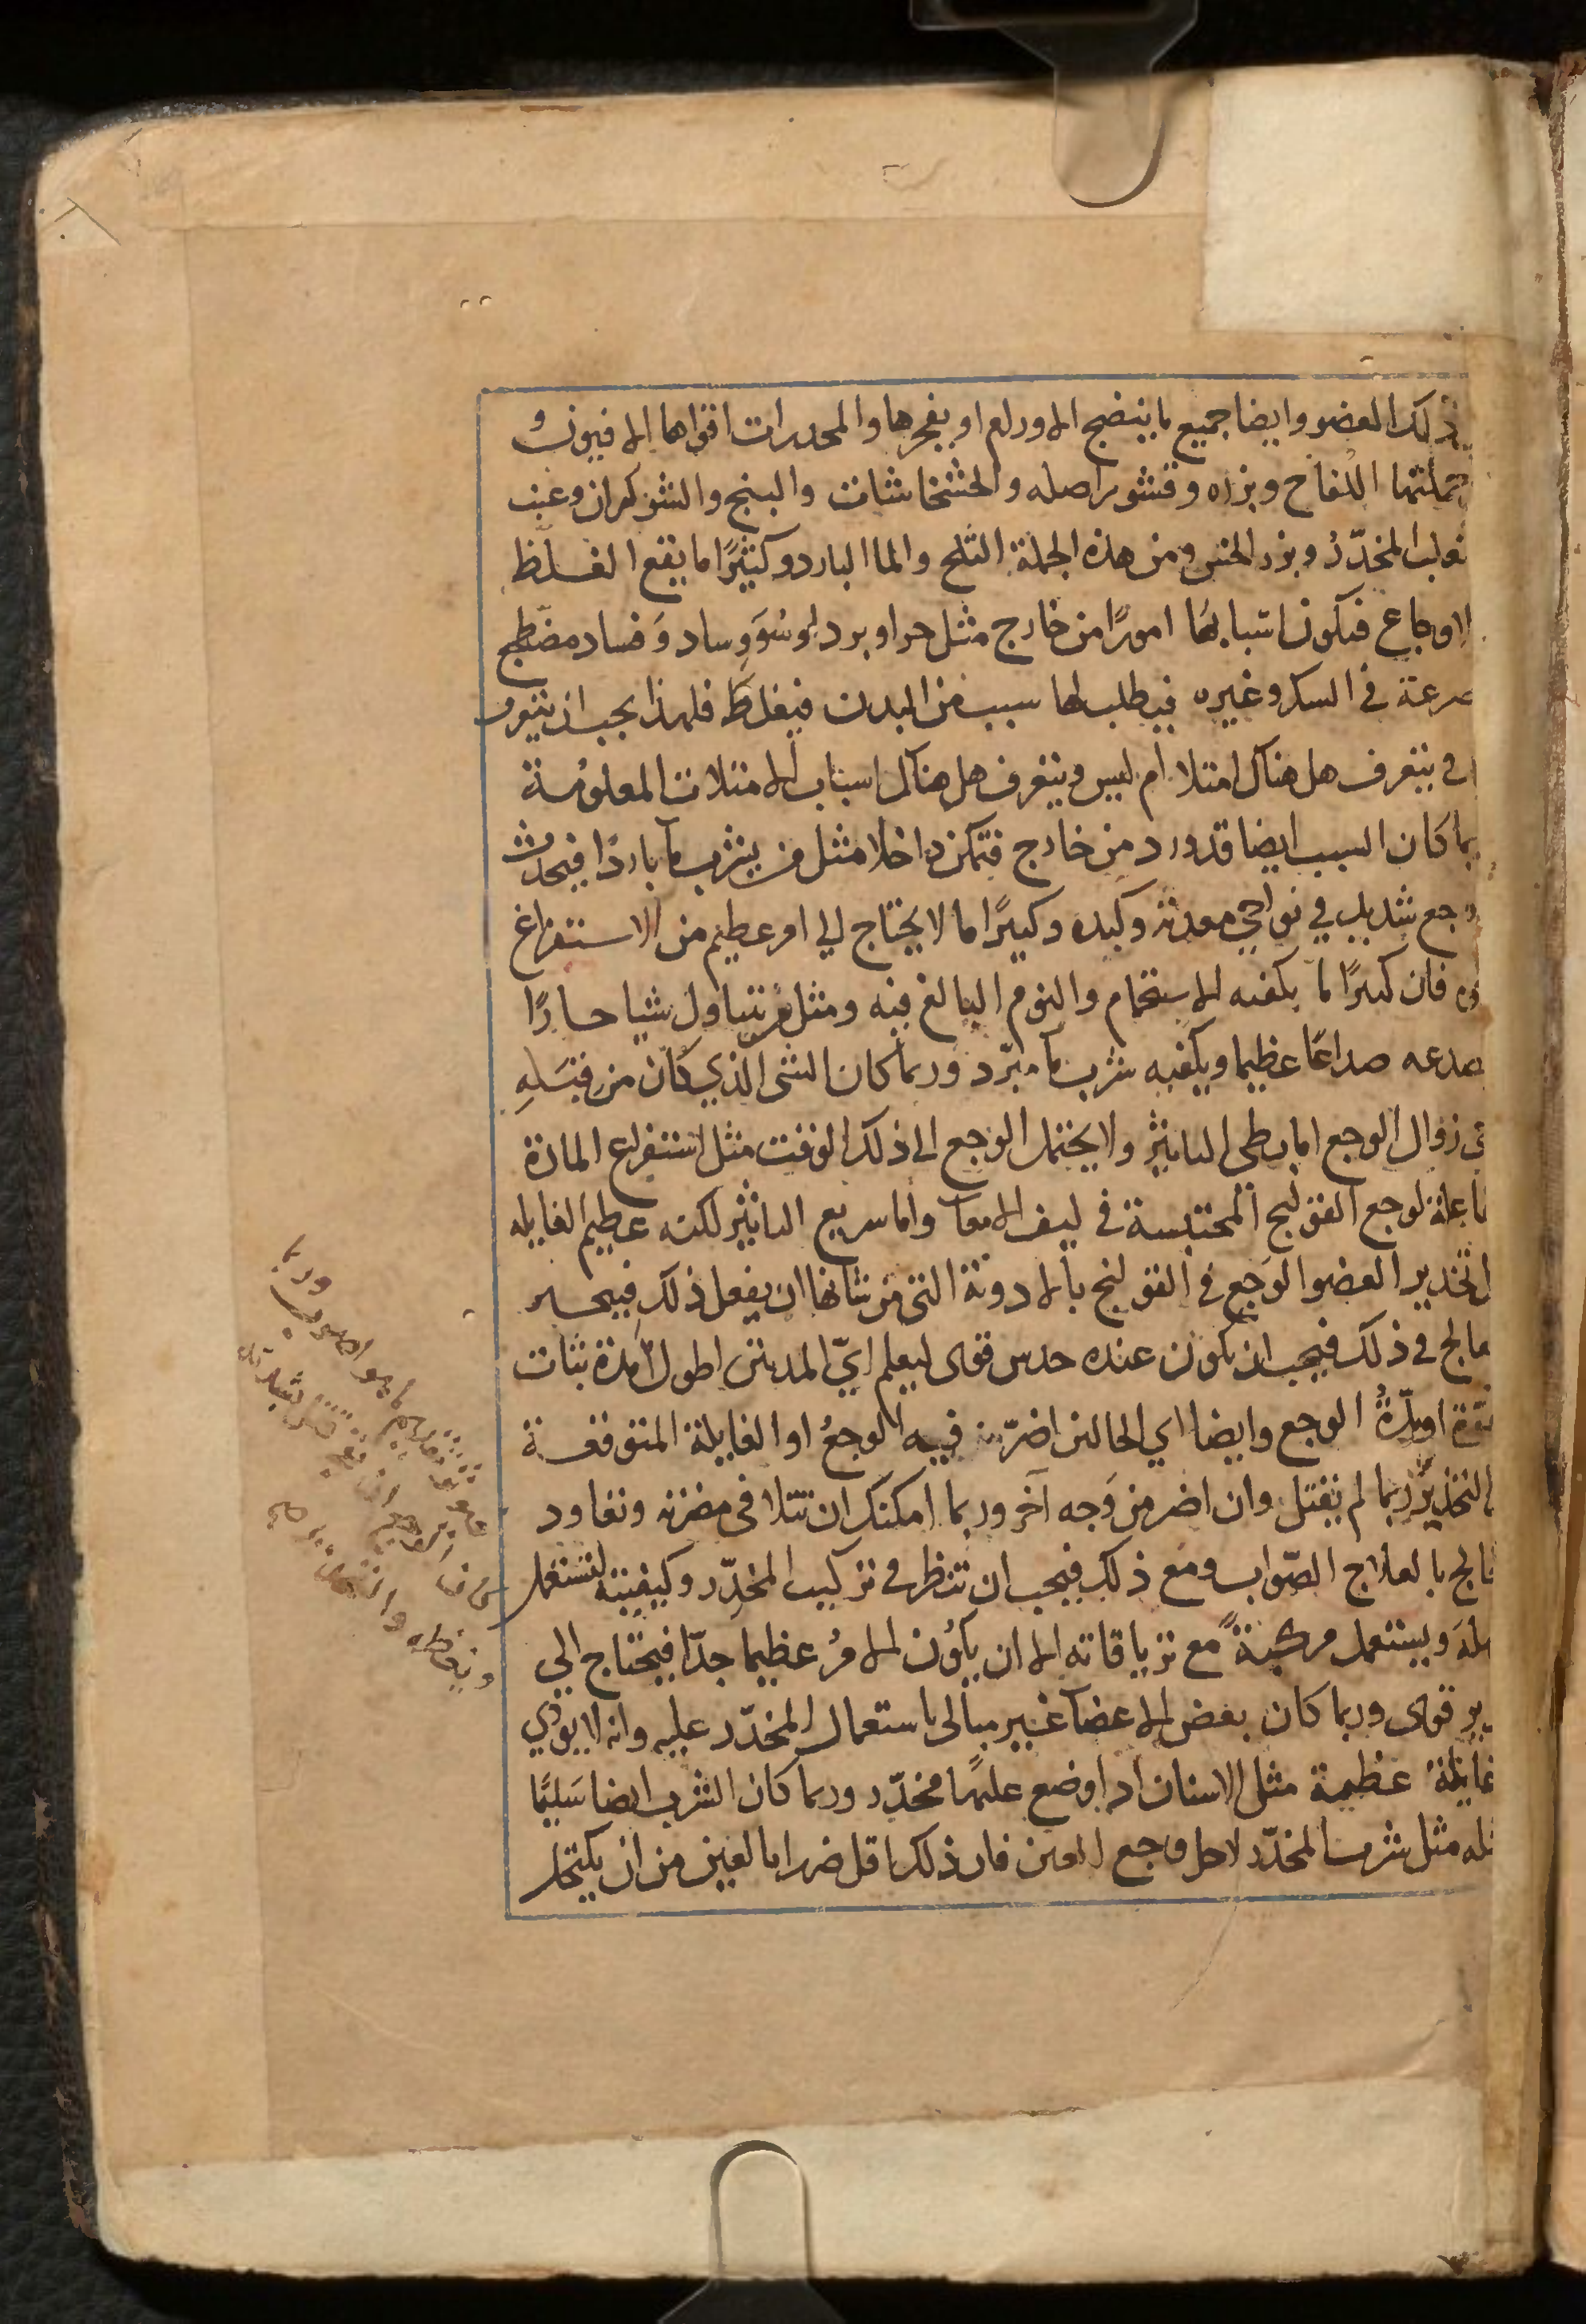 ذلك العضو وايضا جميع ما ينضج الاورام او يفجرها والمخدرات اقواها الافيون و
جملتها اللفاح وبزره وقشور اصله والخشخاشات والبنج والشوكران وعنب
ثعلب المخدّر وبزر الخس ومن هذه الجملة الثلج والما البارد وكثيرًا ما يقع الغلظ
الاوجاع فيكون اسبابها امورًا من خارج مثل حر او برد او سُو وِساد وَفساد مضّطجع
صرعة في السكر وغيره فيطلب لها سبب من البدن فيغلط فلهذا يجب ان يتعرف
في يتعرف هل هناك امتلا ام ليس ويتعرف هل هناك اسباب الامتلات المعلومة
بما كان السبب ايضا قد ورد من خارج فتمكن داخلا مثل من يشرب ما باردًا فيحدث
وجع شديد في نواحي معدته وكبده وكثيرًا ما لا يحتاج الي امر عظيم من الاستفراغ
فان كثيرًا ما يكفيه الاستحمام والنوم البالغ فيه ومثل من يتناول شيا حارًا
صدعه صداعًا عظيما ويكفيه شرب ما مبرّد وربما كان الشي الذي كان من قبَلِهِ
زوال الوجع اما بطى التاثير ولا يحتمل الوجع الى ذلك الوقت مثل استفراغ المادة
فاعلة لوجع القولنج المحتبسة في ليف الامعا واما سريع التاثير لكنه عظيم الغايله
تخدير العضو الوَجع في القولنج بالادوية التي من شانها ان يفعل ذلك فيحير
عالج في ذلك فيجب ان يكون عنده حدس قوى ليعلم ايّ المدتين اطول أمدة ثبات
قوة او مدّةُ الوجع وايضا اي الحالين اضرّ به فيه الوجعُ او الغايلة المتوقفة
التخدير ربما لم يقتل وان اضر من وَجه آخر وربما امكنك ان تتلافى مضرته وتعاود
عالج بالعلاج الصّواب ومع ذلك فيجب ان تنظر في تركيب المخدّر وكيفيته لتستعمل
وتستعمل مركبةً مع ترياقاته الا ان يكون الامرُ عظيما جدّا فيحتاج الي
قوى وربما كان بعض الاعضا غير مبالى باستعمال المخدّر عليه وانه لا يودي
غايلة عظيمة مثل الاسنان اذا وضع عليها مخدّر وربما كان الشرب ايضا سَليمًا
مثل شرب المخدّر لاجل وجع العين فان ذلك اقل ضررا بالعين من ان يكتحل
وربما